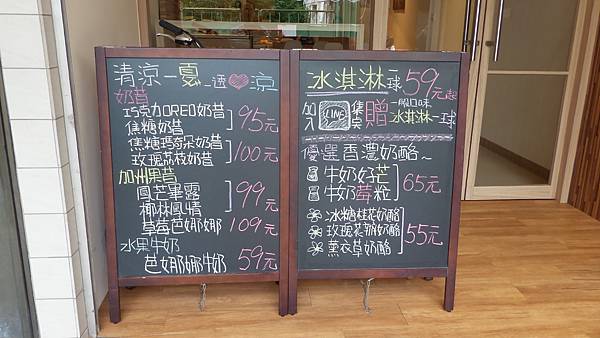 清涼一夏_透♥涼
奶昔
巧克力OREO奶昔
焦糖奶昔
95元
焦糖瑪奇朵奶昔
玫瑰荔枝奶昔
100元
加州果昔
鳳芒畢露
椰林風情
99元
草莓芭娜娜 109元
水果牛奶
芭娜娜牛奶 59元
冰淇淋一球59元起
加入 LINE 集點 贈 一般口味 冰淇淋一球
優選香濃奶酪~
牛奶好芒
牛奶莓粒
65元
冰糖桂花奶酪
玫瑰花釀奶酪
薰衣草奶酪
55元